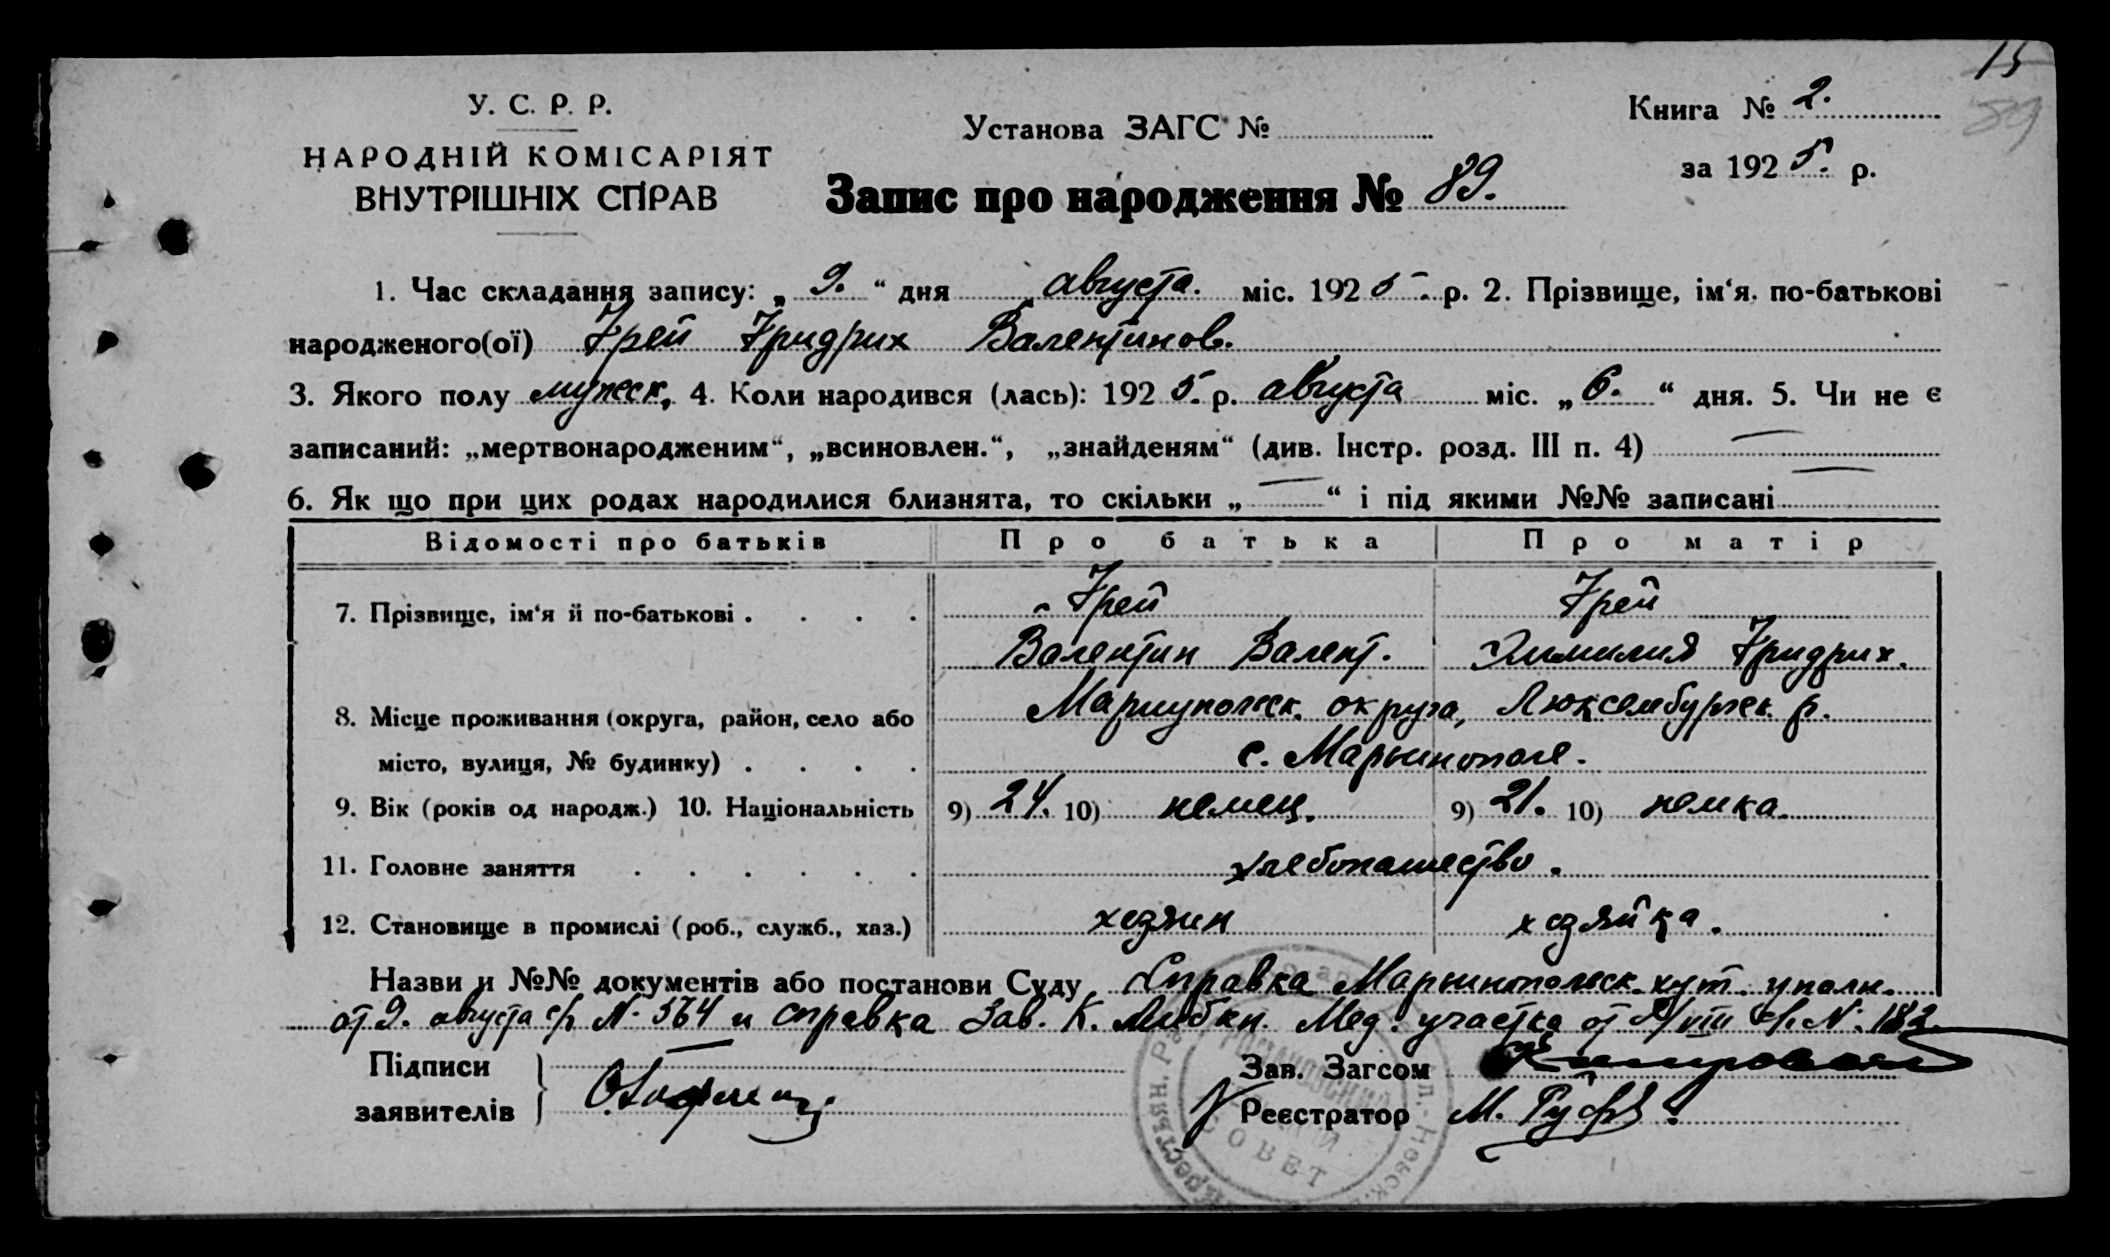 15
89
У. С. Р. Р.
НАРОДНІЙ КОМІСАРІЯТ
ВНУТРІШНІХ СПРАВ
Установа ЗАГС №
Запис про народження № 89.
Книга № 2.
за 1925. р.
1. Час складання запису: „ 9. “ дня августа. міс. 1925. р. 2. Прізвище, ім‘я, по-батькові
народженого(ої) Фрей Фридрих Валентинов.
3. Якого полу мужеск. 4. Коли народився (лась): 1925. р. августа міс. „ 6. “ дня. 5. Чи не є
записаний: „мертвонародженим“, „всиновлен.“, „знайденям“ (див. Інстр. розд. III п. 4) —
6. Як що при цих родах народилися близнята, то скільки „ — “ і під якими №№ записані —
Відомості про батьків Про батька Про матір
7. Прізвище, ім‘я й по-батькові . . . . Фрей Фрей
Валентин Валент. Эмилия Фридрих.
8. Місце проживання (округа, район, село або Мариупольск. округа, Люксембургск. р.
місто, вулиця, № будинку) . . . . с. Марьинополе.
9. Вік (років од народж.) 10. Національність 9) 24. 10) немец. 9) 21. 10) немка.
11. Головне заняття . . . . . . хлебопашество.
12. Становище в промислі (роб., служб., хаз.) хозяин хозяйка.
Назви и №№ документів або постанови Суду Справка Марьинопольск. хут. уполн.
от 9. августа с/г N. 364 и справка Зав. К. Либкн. Мед. участка от VIII с/г. N. 182.
Підписи
заявителів
Зав. Загсом
Реєстратор М.
СОВЕТ